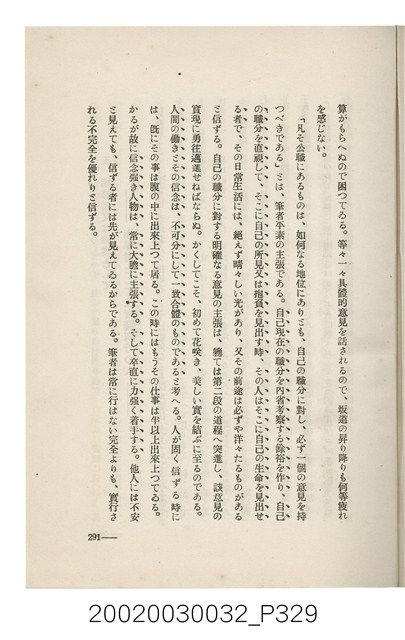 算がもらへぬので困つてゐる。等々一々具體的意見を話されるので、坂道の昇り降りも何等疲れ
を感じない。
「凡そ公職にあるものは、如何なる地位にありとも、自己の職分に對し、必ず一個の意見を持
つべきである」とは、筆者平素の主張である。自己現在の職分を內省考察する餘裕を作り、自己
の職分を直視して、そこに自己の所見又は抱負を見出す時、その人はそこに自己の生命を見出せ
る者で、その日常生活には、絕えず晴々しい光があり、又その前途は必ずや洋々たるものがある
と信ずる。自己の職分に對する明確なる意見の主張は、軈ては第二段の道程へ突進し、該意見の
實現に勇往邁進せねばならぬ。かくしてこそ、初めて花咲き、美しい實を結ぶに至るのである。
人間の働きとその信念は、不可分にして一致合體のものであると考へる。人が固く信ずる時に
は、旣にその事は腹の中に出來上つて居る。この時にはもうその仕事は半以上出來上つてゐる。
かるが故に信念强き人物は、常に大膽に主張する。そして卒直に力强く着手する。他人には不安
と見えても、信ずる者には先が見えてゐるからである。筆者は常に行はない完全よりも、實行さ
れる不完全を優れりと信ずる。
291
20020030032_P329